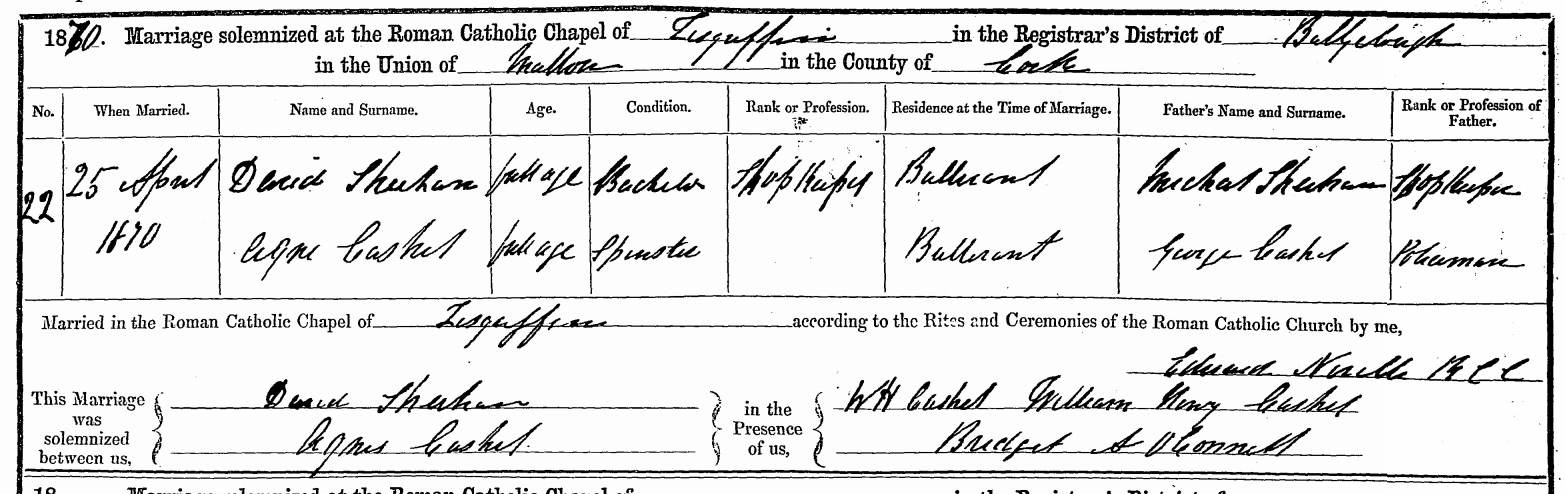 1870. Marriage solemnized at the Roman Catholic Chapel of Lisgriffin in the Registrar's District of Ballyclough
in the Union of Mallow in the County of Cork
No. When Married. Name and Surname. Age. Condition. Rank or Profession. Residence at the Time of Marriage. Father's Name and Surname. Rank or Profession of Father.
22 25 April David Sheehan full age Bachelor Shopkeeper Buttevant Michael Sheehan Shopkeeper
1870 Agnes Cashel full age Spinster Buttevant George Cashel Policeman
Married in the Roman Catholic Chapel of Lisgriffin according to the Rites and Ceremonies of the Roman Catholic Church by me,
Edward Neville R C C
This Marriage was solemnized between us, David Sheehan in the Presence of us, WH Cashel William Henry Cashel
Agnes Cashel Bridget A O'Connell
18 Marriage solemnized at the Roman Catholic Chapel of in the Registrar's District of